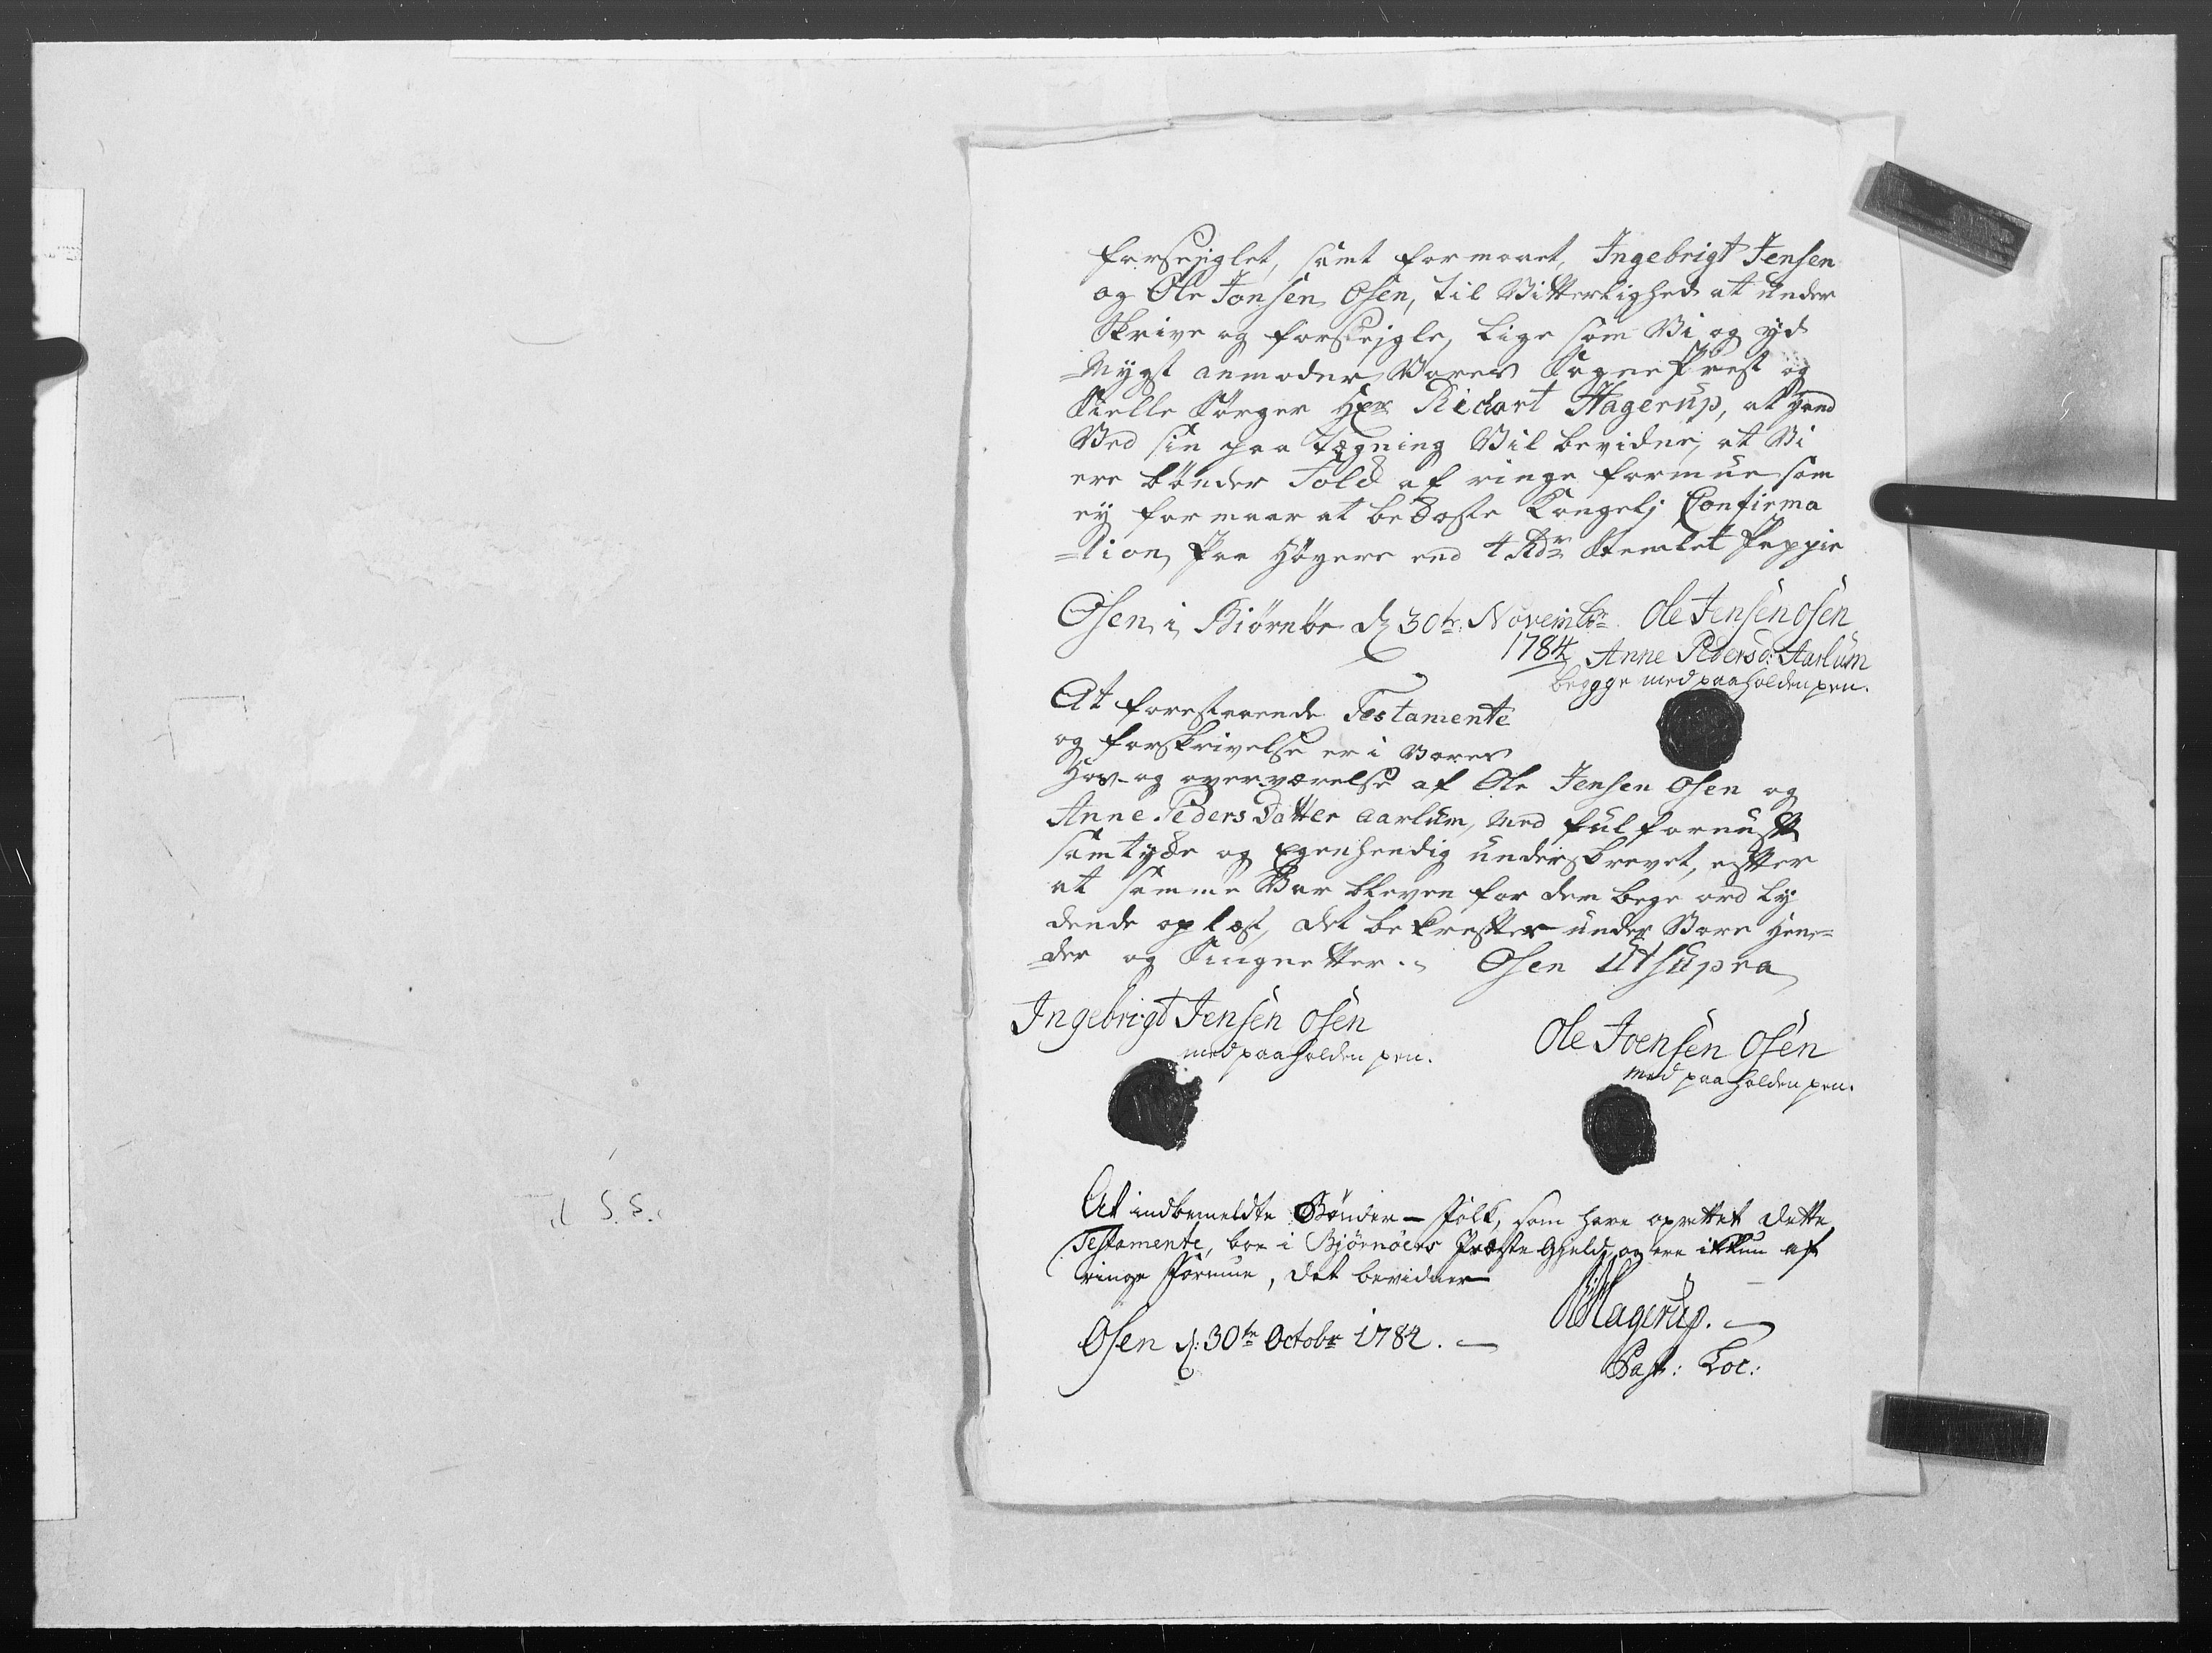 forsejglet, samt formaaet, Ingebrigt Jensen
og Ole Jonsen Osen, til Vitterlighed at under
Skrive og forsejgle, Lige som Vi og yd
=Mygst anmoder Vores Sogne Prest og
Sielle Sørger Hr Richart Hagerup, at hand
Ved sin paa tegning Vil bevidne, at Vi
ere bønder Folck af ringe formue som
ey formaar at bekoste Kongelj Confirma
=tion, paa Høyere end 4 Rdr Stemlet Pappir
Osen i Biørnøe d 30te Novembr Ole Jensen Osen
1784 Anne Pedersd: Aarlum
begge med paaholden pen.
At forestaaende Testamente
og forskrivelse er i Vores
Hos og overværelse af Ole Jensen Osen og
Anne Peders Datter Aarlum, med ful fornuft
samtyke og Egenhendig underskrevet, efter
at samme Var bleven for dem bege ord ly
dende oplæst, det bekrefter under Vore Hen=
=der og Singnetter. Osen Ut supra
Ingebrigt Jensen Osen
med paaholden pen.
Ole Joensen Osen
med paaholden pen.
At indbemeldte Bønder-Folk, som have oprettet dette
Testamente, boe i Bjørnøers Præste Gjeld, og ere ikkun af
ringe Formue, det bevidner
RHagerup.
Osen d: 30te Octobr 1784.
Past: Loc: